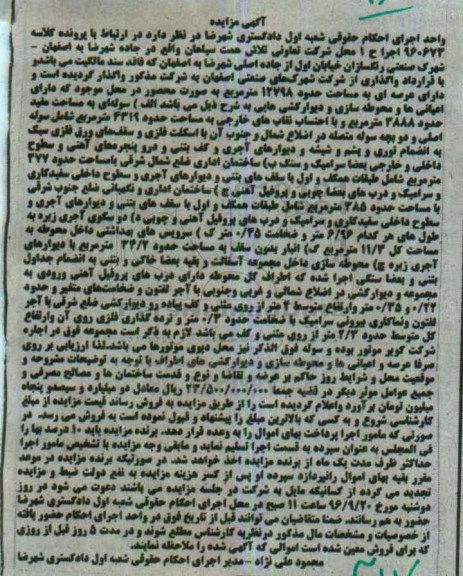 آگهی مزایده
واحد اجرای احکام حقوقی شعبه اول دادگستری شهرضا در نظر دارد در ارتباط با پرونده کلاسه
۹۶۰۶۷۳ اجرا ح ۱ محل شرکت تعاونی تلاش همت سپاهان واقع در جاده شهرضا به اصفهان -
شهرک صنعتی رنگسازان خیابان اول از جاده اصلی شهرضا به اصفهان که فاقد سند مالکیت می باشد و
با قرارداد واگذاری از شرکت شهرکهای صنعتی اصفهان به شرکت مذکور واگذار گردیده است و
دارای عرصه ای به مساحت حدود ۱۲۷۹۸ مترمربع به صورت محصور در محل موجود که دارای
اعیانی ها و محوطه سازی و دیوارکشی هایی به شرح ذیل می باشد الف ) سوله‌ای به مساحت مفید
حدود ۳۸۸۸ مترمربع و با احتساب نقاب های خارجی به مساحت حدود ۴۳۱۹ مترمربع شامل سوله
اصلی و دو بچه سوله متصله در اضلاع شمال و جنوب آن با اسکلت فلزی و سقف‌های ورق فلزی سبک
به انضمام لوری و پشم و شیشه و دیوارهای آجری و کف بتنی و درو پنجره‌های آهنی و سطوح
داخلی و خارجی بعضا سرامیک و سنگ ب) ساختمان اداری ضلع شمال شرقی بامساحت حدود ۳۷۷
مترمربع شامل طبقات همکف و اول با سقف های بتنی و دیوارهای آجری و سطوح داخلی سفیدکاری
و سرامیک و درب های بعضا چوبی و پروفیل آهنی ج ) ساختمان اداری و نگهبانی ضلع جنوب شرقی
با مساحت حدود ۳۸۵ مترمربع شامل طبقات همکف و اول با سقف های بتنی و دیوارهای آجری و
سطوح داخلی سفیدکاری و سرامیک و درب های پروفیل آهنی و چوبی د) دو سکوی آجری زیره به
طول های هر کدام ۶/۹۶ متر و ضخامت ۰/۴۵ متر ک ) سرویس های بهداشتی داخل محوطه به
مساحت کل ۱۱/۳ مترمربع ک) انبار بدون سقف به مساحت حدود ۳۴/۲ مترمربع با دیوارهای
آجری زبره چ) محوطه سازی داخل مجموعه آسفالت و بقیه بعضا خاکی و بتنی به انضمام جداول
بتنی و بعضا سنگی اجرا شده که اطراف کل محوطه دارای درب های پروفیل آهنی ورودی به
مجموعه و دیوارکشی در اضلاع شمالی و غربی وجنوبی با آجر لفتون و ضخامت‌های متغیر و حدود
۰/۲۲ و ۰/۳۵ متر وارتفاع متوسط ۲ متر از روی بتنی و کف پیاده رو دیوارکشی ضلع شرقی با آجر
لفتون ونماکاری بیرونی سرامیک با ضخامت حدود ۰/۳ متر و نرده گذاری فلزی روی آن وارتفاع
کل متوسط حدود ۲/۳ متر از روی بتنی و کف می باشد لازم به ذکر است مجموعه فوق در اجاره
شرکت کویر موتور بوده و سوله فوق الذکر نیز محل دپوی موتورها می باشد.لذا ارزیابی بر روی
صرفا عرصه و اعیانی ها و محوطه سازی و دیوارکشی های اطراف با توجه به توضیحات مشروحه و
موقعیت محل و شرایط روز حاکم بر عرضه و تقاضا و نوع و قدمت ساختمان ها و مصالح مصرفی و
جمیع عوامل موثر دیگر در قضیه جمعا ریال معادل دو میلیارد و سیصدو پنجاه
میلیون تومان برآورد واعلام گردیده است را از طریق مزایده به فروش رساند قیمت مزایده از مبلغ
کارشناسی شروع و به کسی که بالاترین مبلغ را پیشنهاد و قبول نموده است به فروش می رسد در
صورتی که مامور اجرا پرداخت بهای اموال را به وعده قرار دهد. برنده مزایده باید ۱۰ درصد بها را
فی المجلس به عنوان سپرده به قسمت اجرا تسلیم نماید و مابقی وجه مزایده با تشخیص مامور اجرا
حداکثر ظرف مدت یک ماه از برنده مزایده اخذ خواهد شد. در صورتیکه برنده مزایده در موعد
مقرر بقیه بهای اموال رانپردازد سپرده او پس از کسر هزینه مزایده به نفع دولت ضبط و مزایده
تجدید می گردد از کسانیکه مایل به شرکت در جلسه مزایده می باشند دعوت می شود در روز
دوشنبه مورخ ۹۶/۹/۲۰ ساعت ۱۱ صبح در محل اجرای احکام حقوقی شعبه اول دادگستری شهرضا
حضور به هم رسانند. ضمنا متقاضیان می توانند قبل از تاریخ فوق در واحد اجرای احکام حضور یافته
از خصوصیات و مشخصات مال مذکور درنظریه کارشناس مطلع شوند و در مدت ۵ روز قبل از روزی
که برای فروش معین شده است اموالی که آگهی شده را ملاحظه نمایند.
محمود علی نژاد -مدیر اجرای احکام حقوقی شعبه اول دادگستری شهرضا